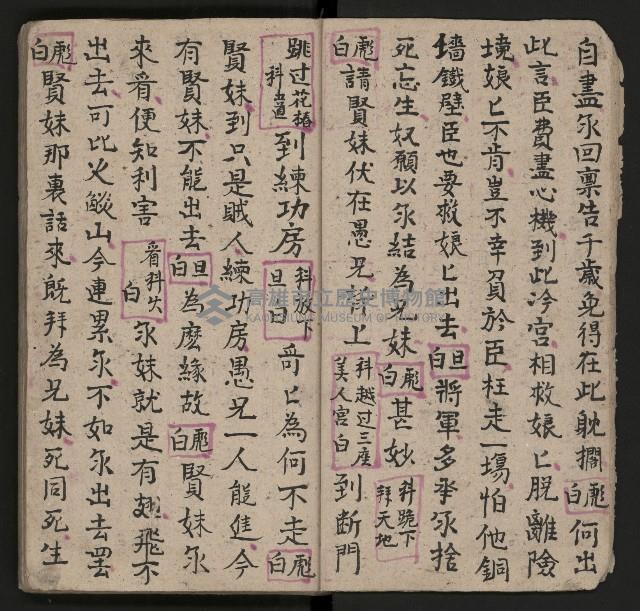 自盡尔回禀告千歲免得在此耽擱彪白何出
此言臣費盡心機到此冷宮相救娘匕脫離險
境娘匕不肯豈不幸負於臣枉走一塲怕他銅
墻鐵壁臣也要救娘匕出去旦白將軍多承尔捨
死忘生奴願以尔結為兄妹彪白甚妙科跪下拜天地
彪白請賢妹伏在愚兄背上科越过三座美人宮白到断門
跳过花樁科置到練功房科放下旦白哥匕為何不走彪白
賢妹到只是賊人練功房愚兄一人能進今
有賢妹不能出去旦白為麽緣故彪白賢妹尔
來看便知利害看科火白尔妹就是有翅飛不
出去可比火燄山今連累尔不如尔出去罢
彪白賢妹那裏話來既拜為兄妹死同死生
高雄市立歷史博物館
KAOHSIUNG MUSEUM OF HISTORY